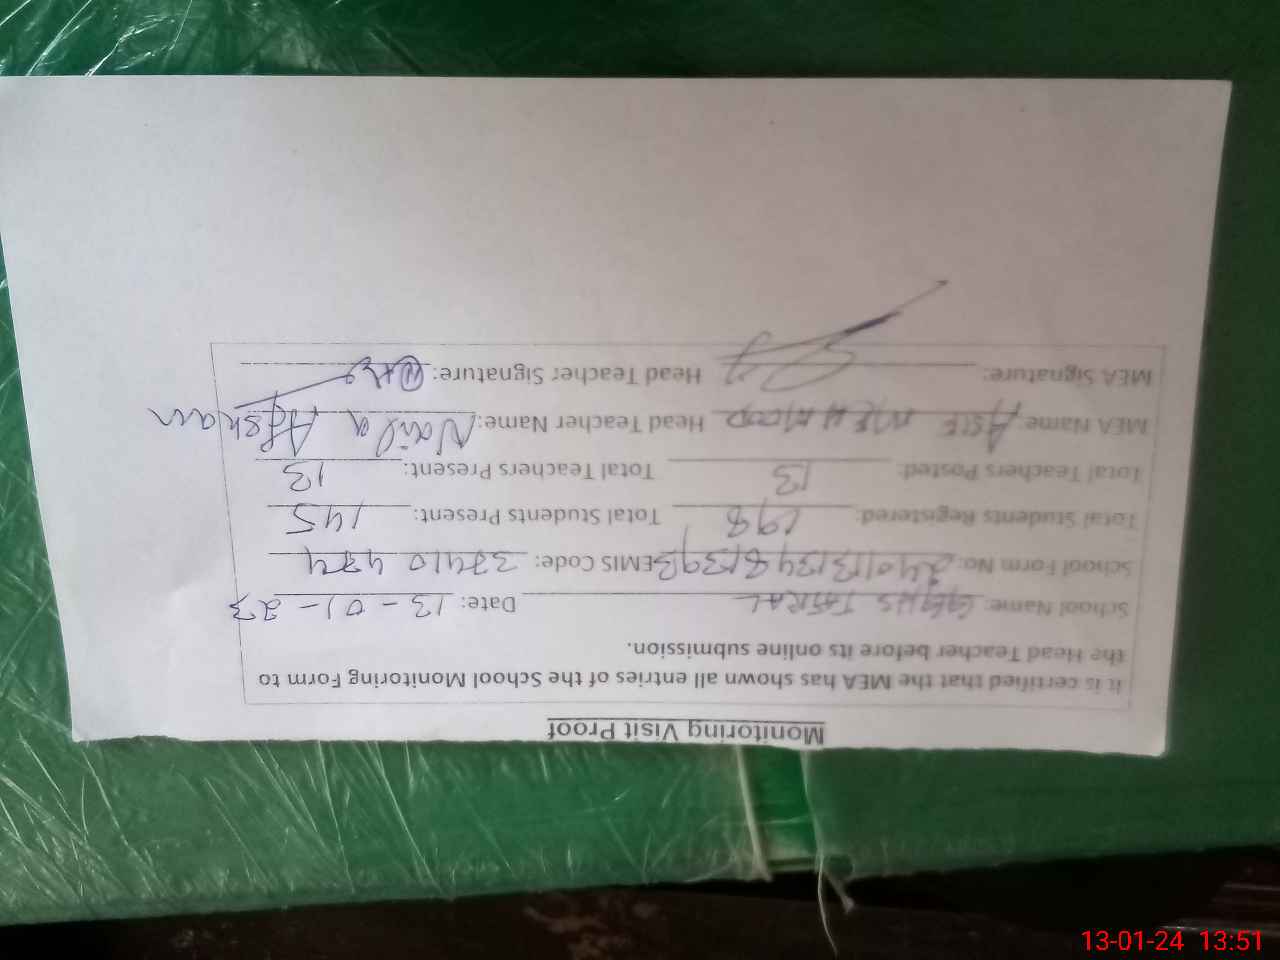 Monitoring Visit Proof
it is certified that the MEA has shown all entries of the School Monitoring Form to
the Head Teacher before its online submission.
School Name: Date: 13-01-23
School Form No: EMIS Code: 37410474
Total Students Registered: 198 Total Students Present: 145
Total Teachers Posted: 13 Total Teachers Present: 13
MEA Name: ASIF MEHMOOD Head Teacher Name: Naila Afshan
MEA Signature: Head Teacher Signature:
13-01-24 13:51